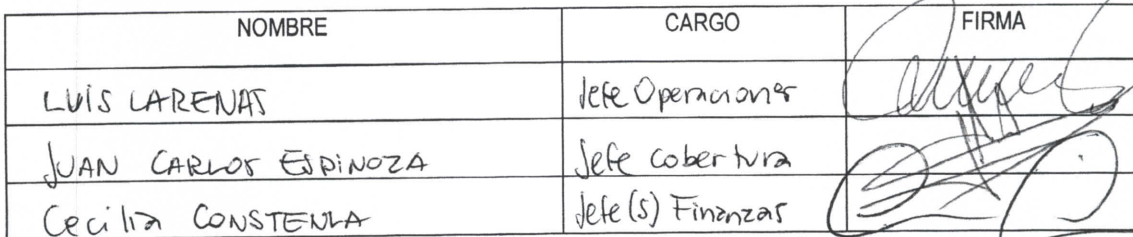 NOMBRE CARGO FIRMA
LUIS LARENAS Jefe Operaciones
JUAN CARLOS ESPINOZA Jefe cobertura
Cecilia CONSTENLA Jefe(s) Finanzas